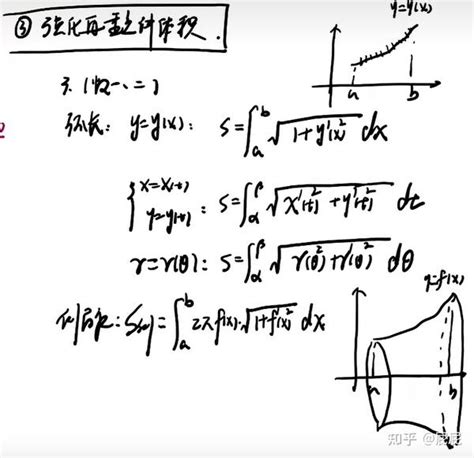 ③ 强化再重点体积.
y=y(x)
a b
3. (数一、二)
弧长: y=y(x): S=∫_a^b √(1+y'(x)²) dx
{x=x(t) y=y(t): S=∫_α^β √(x'(t)²+y'(t)²) dt
r=r(θ): S=∫_α^β √(r(θ)²+r'(θ)²) dθ
侧面积: S侧=∫_a^b 2πf(x)·√(1+f'(x)²) dx
y=f(x)
a b
知乎 @屁屁